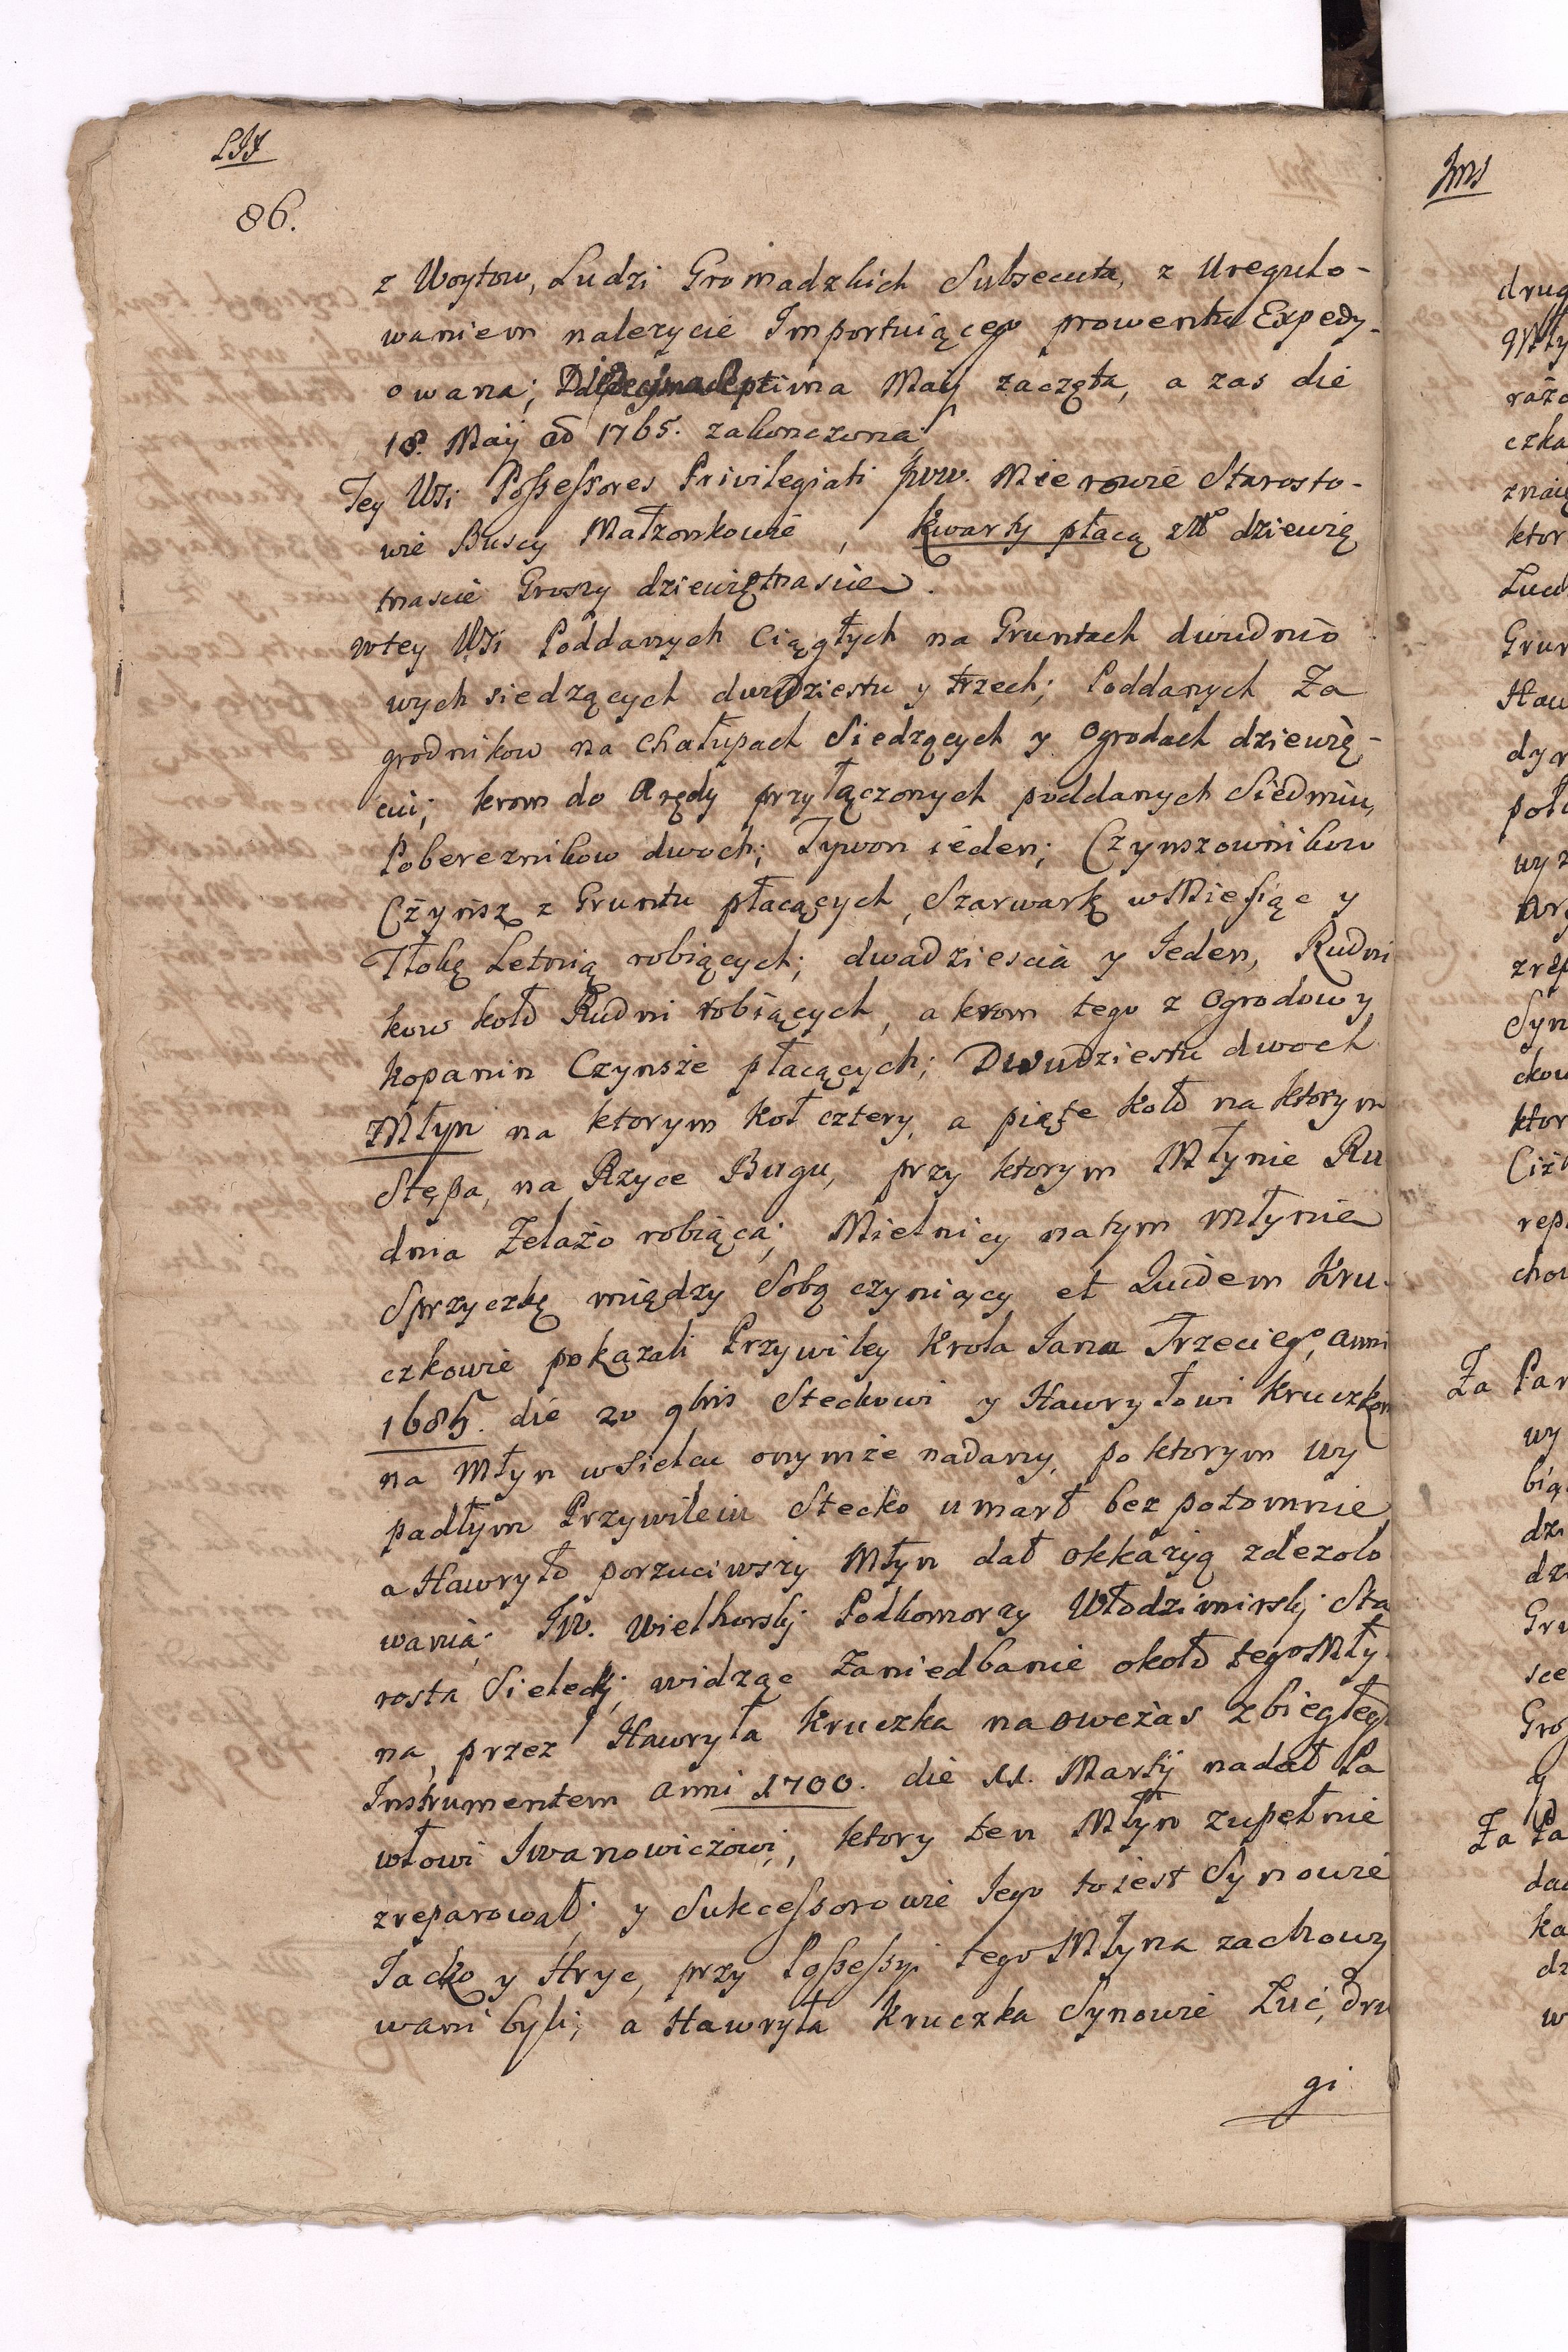 LIJ
86.
z Woytow, Ludzi Gromadzkich Subsecuta, z Uregulo-
waniem nalezycie Importuiącego prowentu Expedy-
owana; Decimaseptima Maij zaczęta, a zas die
18. Maij ao 1765. zakonczona
Tey Wsi Possessores Privilegiati Jww. Mierowie Starosto-
wie Buscy Małzonkowie, kwarty płacą złł dziewię
tnascie Groszy dziewiętnascie.
wtey Wsi Poddanych Ciągłych na Gruntach dwudnio
wych siedzących dwudziestu y trzech; Poddanych Za
grodnikow na Chałupach Siedzących y Ogrodach dziewię-
ciu; krom do Arędy przyłączonych poddanych Siedmiu,
Pobereznikow dwoch; Tywon ieden; Czynszownikow
Czynsz z Gruntu płacących, Szarwark w Miesiąc y
Tłokę Letnią robiących; dwadziescia y Ieden, Rudni
kow koło Rudni robiących, a krom tego z Ogrodow y
kopanin Czynsze płacących; Dwudziestu dwoch
Młyn na ktorym koł cztery, a piąte koło na ktorym
Stępa, na Rzyce Bugu, przy ktorym Młynie Ru
dnia Zelazo robiąca; Mielnicy natym Młynie
Sprzyczkę między Sobą czyniący et Quidem Kru-
czkowie pokazali Przywiley Krola Iana Trzeciego, Anni
1685. die 20 9bris Steckowi y Hawryłowi Kruczkom
na Młyn wSielcu onymże nadany, po ktorym wy
padłym Przywileiu Stecko umarł bez potomnie,
a Hawryło porzuciwszy Młyn dał okkazyą zdezolo
wania; JW. Wielhorskj Podkomorzy Włodzimirskj Sta
rosta Sieleckj, widząc Zaniedbanie około tego Mły-
na, przez Hawryła Kruczka naowczas zbiegłego
Instrumentem Anni 1700. die 11. Martij nadał Pa
włowi Iwanowiczowi, ktory ten Młyn zupełnie
zreparował; y Sukcessorowie Iego toiest Synowie
Iacko y Hryc, przy Possessyi tego Młyna zachowy
wani byli; a Hawryła Kruczka Synowie Luć, dru
gi
Jms
drug
Mły
ktor
Grun
Haw
ktor
Za Par
wy
dzi
Gro
Za Pa